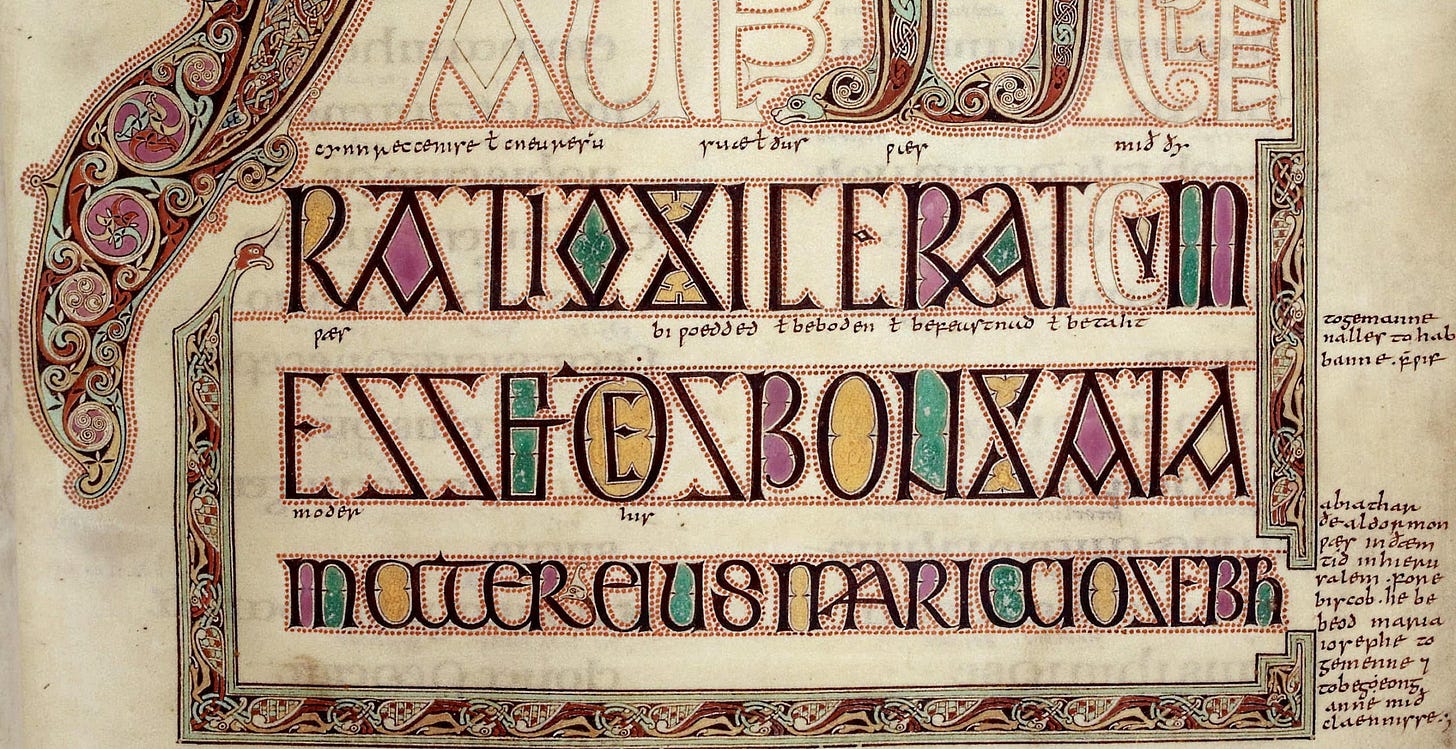 cynnreccenise ł cneuresuu suæ ł ðus ƿæs mið ðy
RATIO SIC ERAT CVM
ƿæs biƿoedded ł beboden ł befeastnad ł betaht
ESSET DESBONSATA
moder his
MATER EIUS MARIA IOSEBH
to gemanne
nalles to hab
banne . ƿif
abiathar
ðe aldormon
ƿæs in ðæm
tid in hieru
salem . fone
biscob . he be
beod maria
iosephe to
gemenne ⁊
to begeong
anne mið
claennisse .